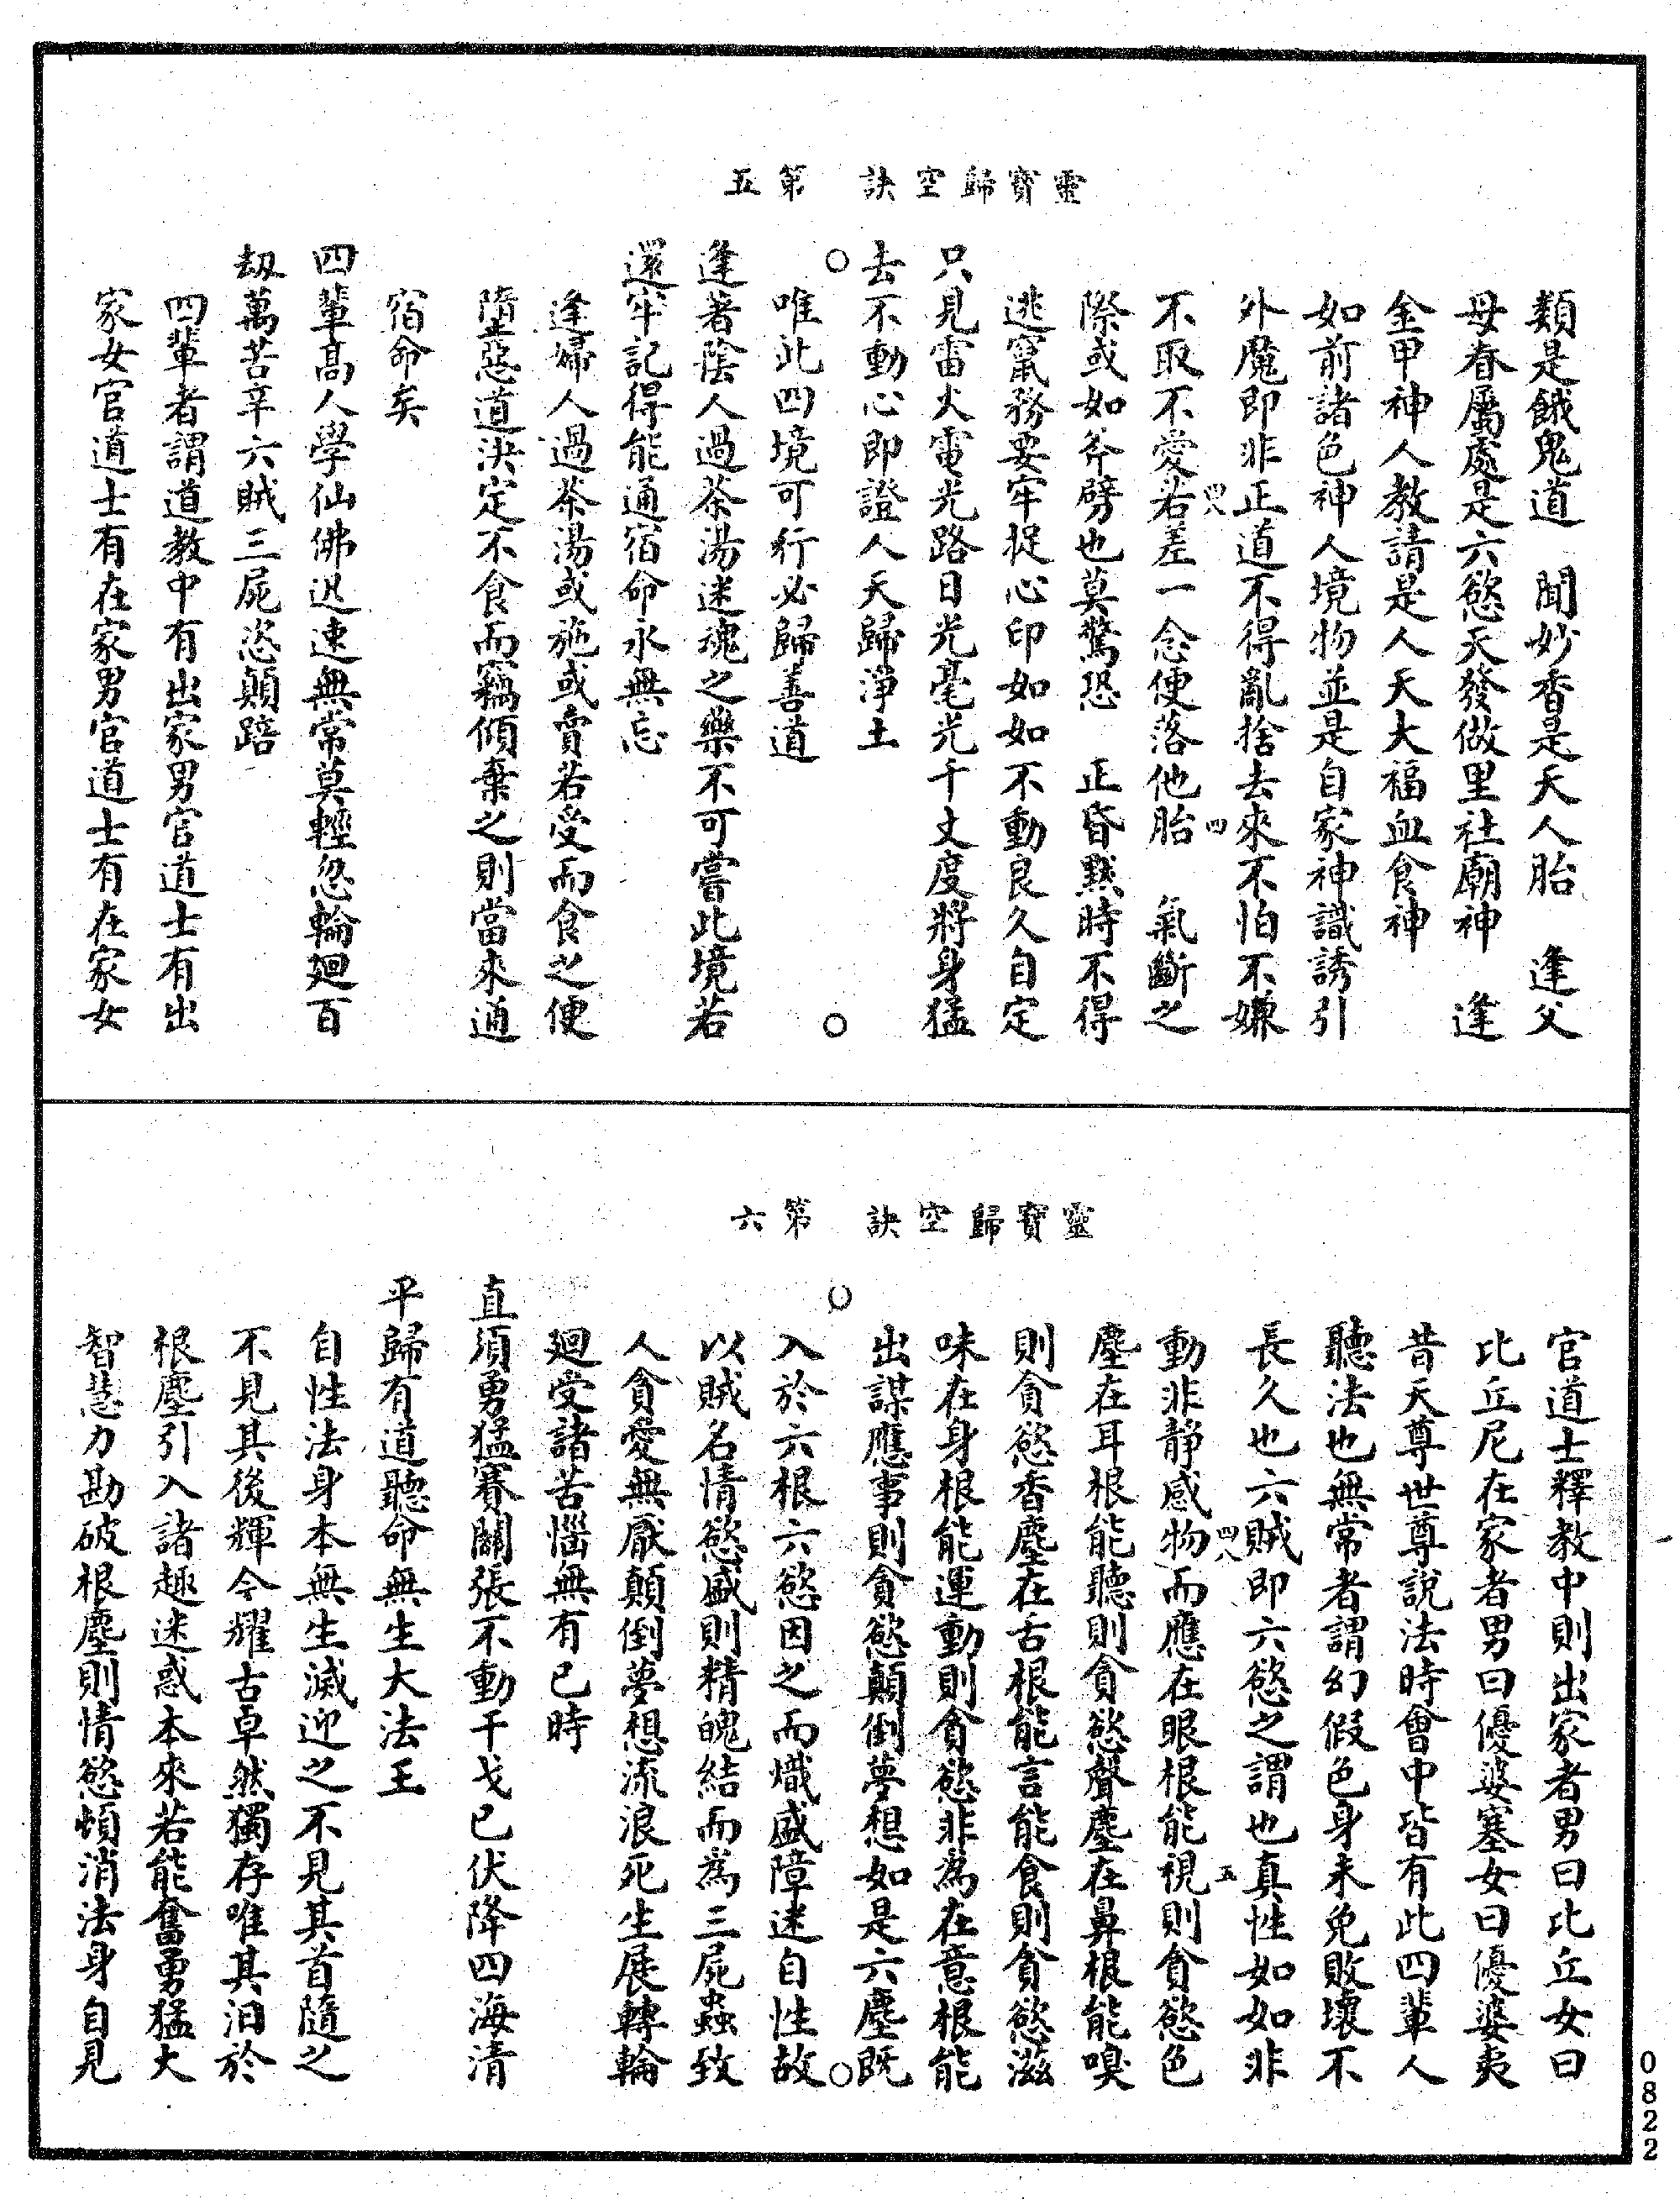 靈寶歸空訣　第五
類是餓鬼道　聞妙香是天人胎　逢父
母眷屬處是六慾天發做里社廟神　逢
金甲神人教請是人天大福血食神
如前諸色神人境物並是自家神識誘引
外魔即非正道不得亂捨去來不怕不嫌
四八　四
不取不愛若差一念便落他胎　氣斷之
際或如斧劈也莫驚恐　正昏黙時不得
逃竄務要牢捉心印如如不動良久自定
只見雷火電光路日光毫光千丈度將身猛
去不動心即證人天歸淨土
唯此四境可行必歸善道
逢著陰人過茶湯迷魂之樂不可嘗此境若
還牢記得能通宿命永無忘
逢婦人過茶湯或施或賣若受而食之便
墮惡道決定不食而竊傾棄之則當來通
宿命矣
四輩高人學仙佛迅速無常莫輕忽輪廻百
刼萬苦辛六賊三屍恣顛踣
四輩者謂道教中有出家男官道士有出
家女官道士有在家男官道士有在家女
靈寶歸空訣　第六
官道士釋教中則出家者男曰比丘女曰
比丘尼在家者男曰優婆塞女曰優婆夷
昔天尊世尊說法時會中皆有此四輩人
聽法也無常者謂幻假色身未免敗壞不
長久也六賊即六慾之謂也真性如如非
四八　五
動非靜感物而應在眼根能視則貪慾色
塵在耳根能聽則貪慾聲塵在鼻根能嗅
則貪慾香塵在舌根能言能食則貪慾滋
味在身根能運動則貪慾非為在意根能
出謀應事則貪慾顛倒夢想如是六塵既
入於六根六慾因之而熾盛障迷自性故
以賊名情慾盛則精魄結而為三屍蟲致
人貪愛無厭顛倒夢想流浪死生展轉輪
廻受諸苦惱無有已時
直須勇猛賽關張不動干戈已伏降四海清
平歸有道聽命無生大法王
自性法身本無生滅迎之不見其首隨之
不見其後輝今耀古卓然獨存唯其汩於
根塵引入諸趣迷惑本來若能奮勇猛大
智慧力勘破根塵則情慾頓消法身自見
0822